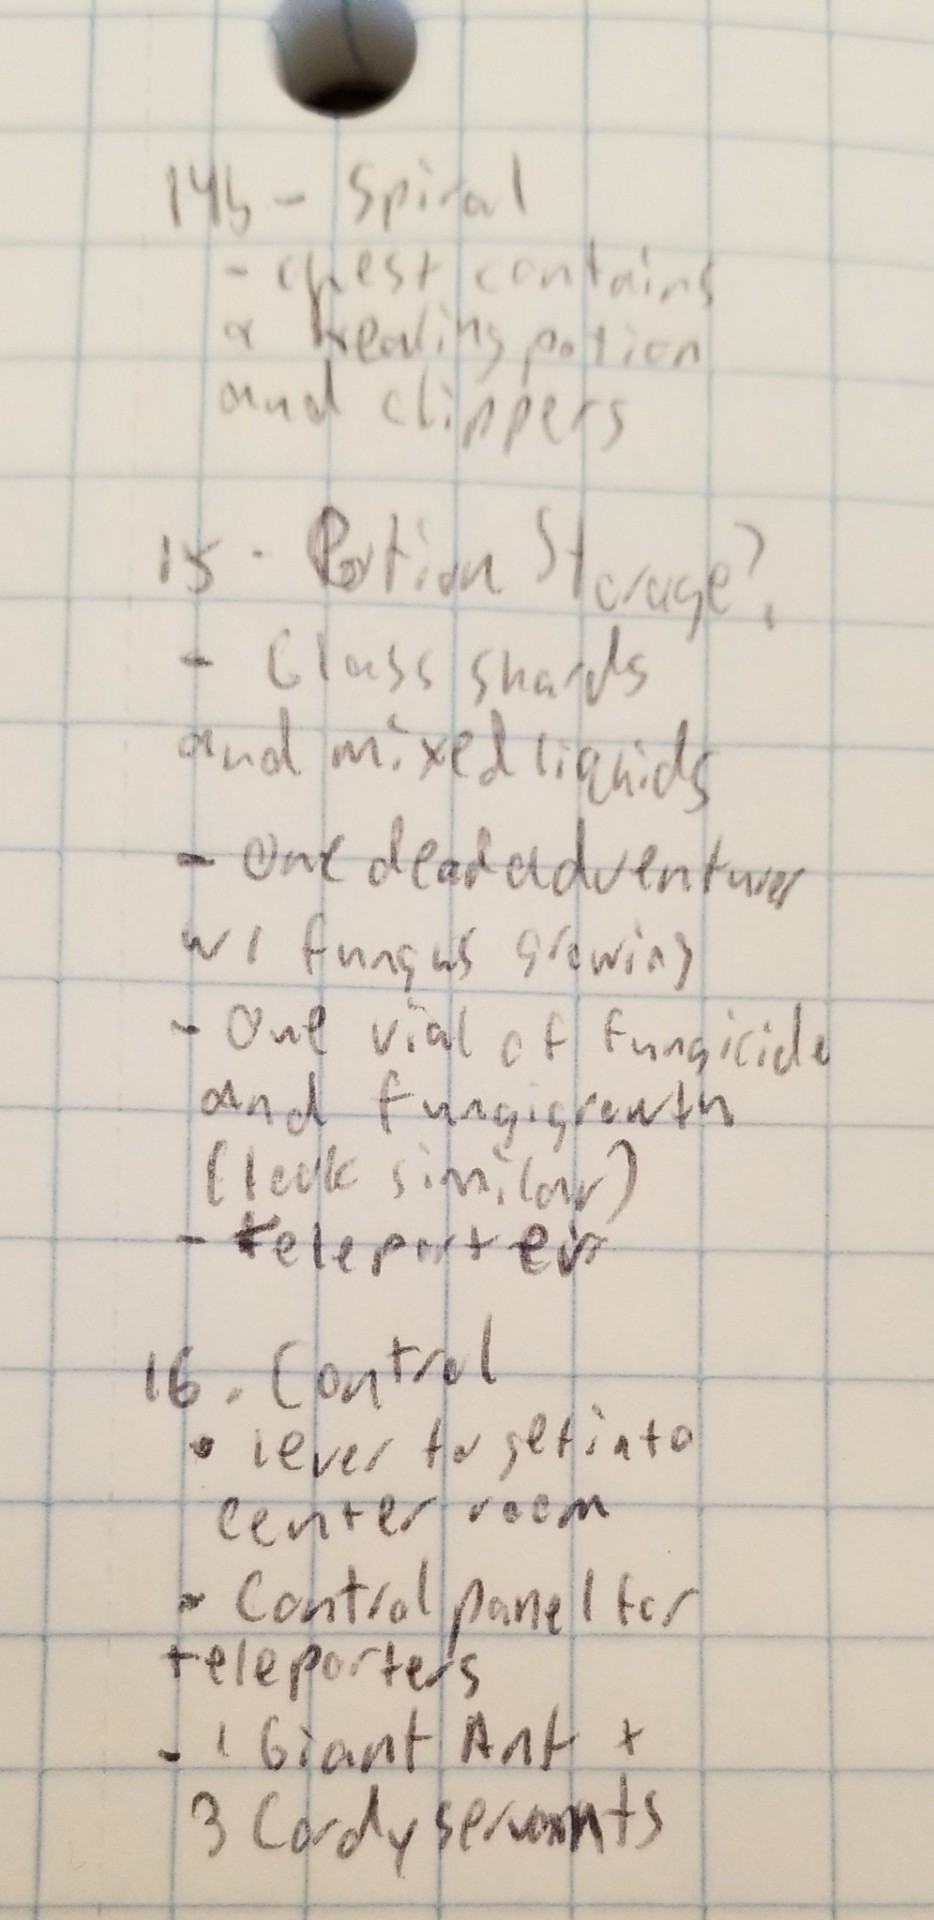 14b - Spiral
- chest contains
a healing potion
and clippers
15. Potion Storage?
- Glass shards
and mixed liquids
- One dead adventurer
w/ fungus growing
- One vial of fungicide
and fungigrowth
(look similar)
- teleporter
16. Control
• lever to get into
center room
- Control panel for
teleporters
- 1 Giant Ant +
3 Cordyservants